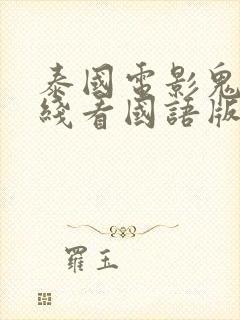 泰國電影鬼
綫看國語版
羅玉